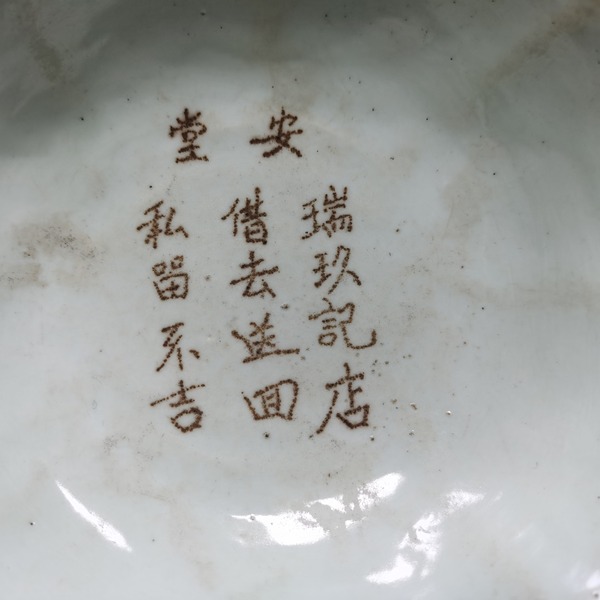 安堂
瑞玖記店
借去送回
私留不吉